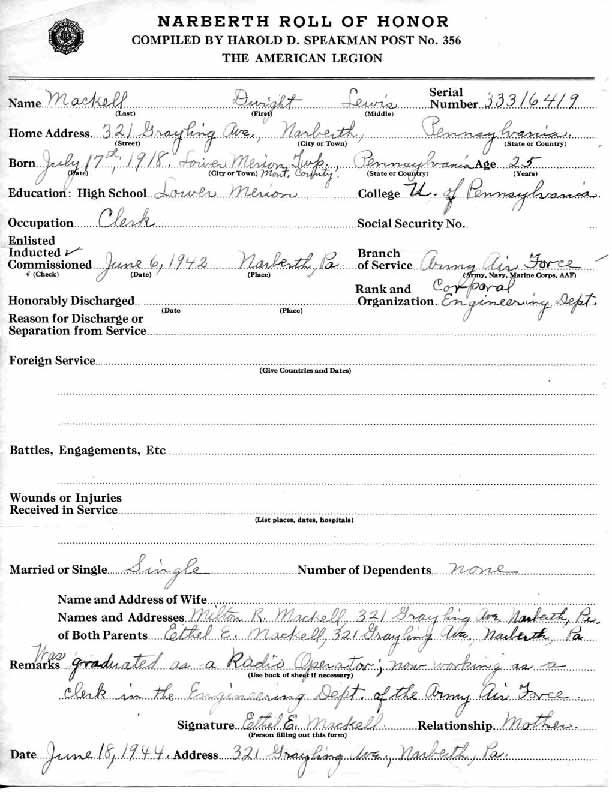 NARBERTH ROLL OF HONOR
COMPILED BY HAROLD D. SPEAKMAN POST No. 356
THE AMERICAN LEGION
Name Mackell Dwight Lewis Serial Number 33316419
(Last) (First) (Middle)
Home Address 321 Grayling Ave, Narberth, Pennsylvania
(Street) (City or Town) (State or Country)
Born July 17th, 1918 Lower Merion Twp. Mont. County Pennsylvania Age 25
(Date) (City or Town) (State or Country) (Years)
Education: High School Lower Merion College U. of Pennsylvania
Occupation Clerk Social Security No.
Enlisted
Inducted ✓ Branch
Commissioned June 6, 1942 Narberth, Pa of Service Army Air Force
✓ (Check) (Date) (Place) (Army, Navy, Marine Corps, AAF)
Rank and Corporal
Honorably Discharged Organization Engineering Dept.
(Date (Place)
Reason for Discharge or
Separation from Service
Foreign Service
(Give Countries and Dates)
Battles, Engagements, Etc
Wounds or Injuries
Received in Service
(List places, dates, hospitals)
Married or Single Single Number of Dependents none
Name and Address of Wife
Names and Addresses Milton R. Mackell, 321 Grayling Ave Narberth, Pa
of Both Parents Ethel E. Mackell, 321 Grayling Ave, Narberth, Pa
Remarks Was graduated as a Radio Operator; now working as a
(Use back of sheet if necessary)
clerk in the Engineering Dept. of the Army Air Force
Signature Ethel E. Mackell Relationship Mother
(Person filling out this form)
Date June 18, 1944. Address 321 Grayling Ave, Narbeth, Pa.